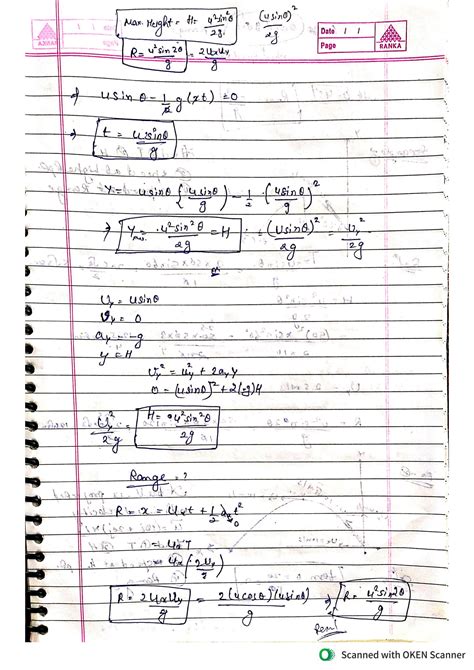 Max. Height = H = u²sin²θ/2g = (usinθ)²/2g
R = u²sin2θ/g = 2UxUy/g
Date / /
Page
RANKA
⇒ usinθ - 1/2 g(2t) = 0
⇒ t = usinθ/g
Y = usinθ {usinθ/g} - 1/2 · (usinθ/g)²
⇒ Ymax = u²sin²θ/2g = H = (usinθ)²/2g = Uy²/2g
or
Uy = usinθ
Vy = 0
ay = -g
y = H
Vy² = Uy² + 2ayY
0 = (usinθ)² + 2(-g)H
Uy²/2g = H = u²sin²θ/2g
Range = ?
R = x = Uxt + 1/2 axt² 0
= UxT
= Ux (2Uy/g)
R = 2UxUy/g = 2(ucosθ)(usinθ)/g ⇒ R = u²sin2θ/g
Scanned with OKEN Scanner